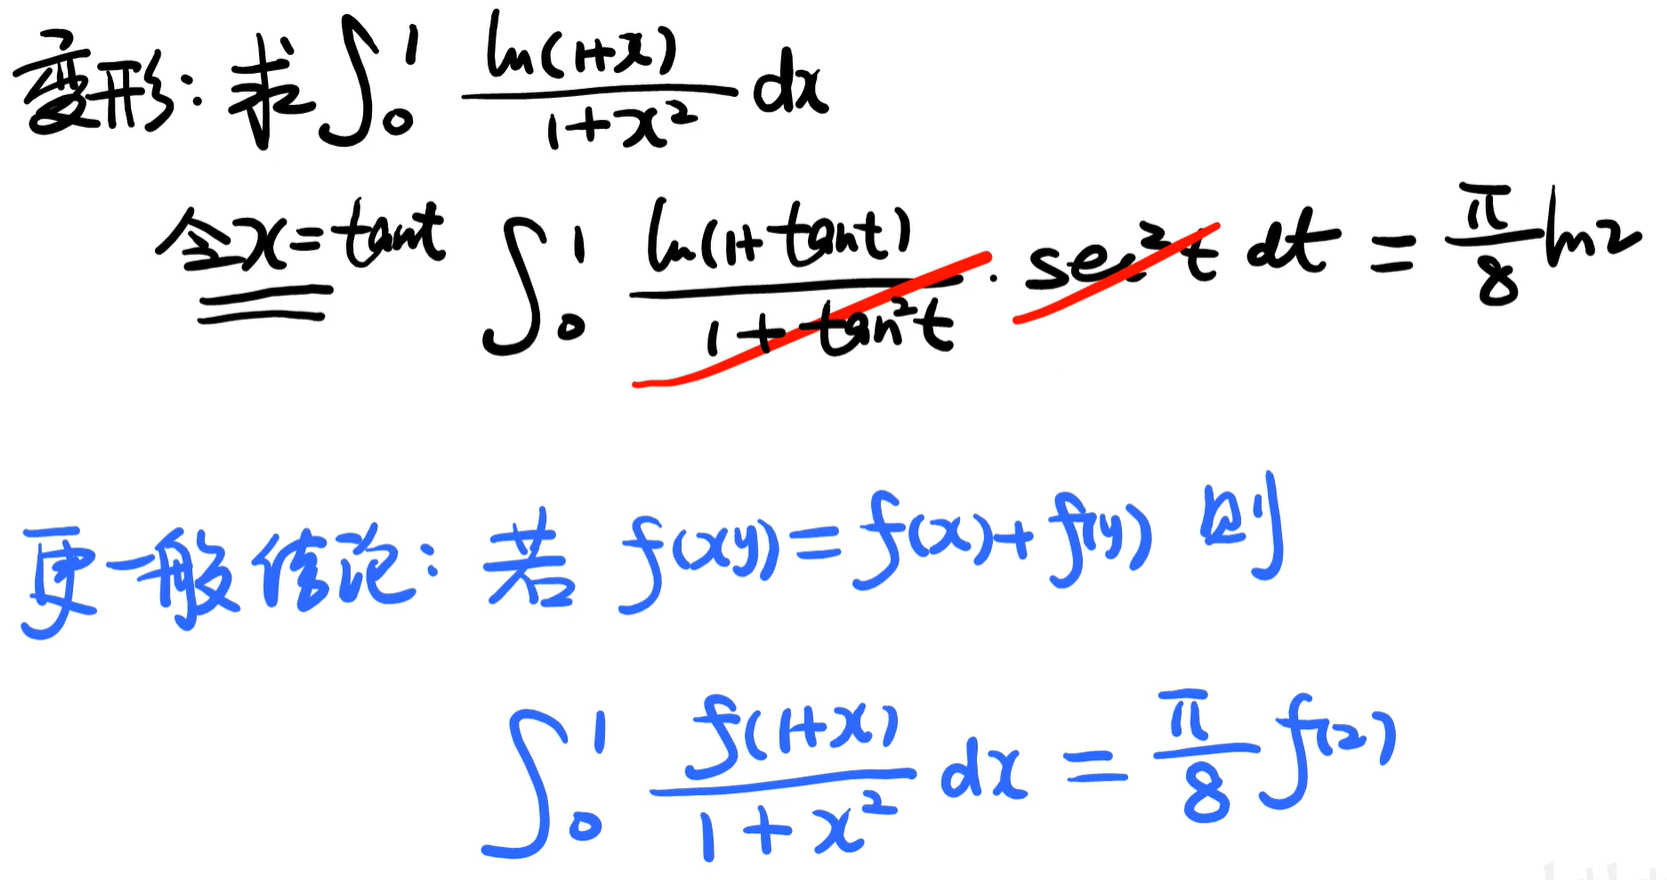 变形: 求 ∫₀¹ ln(1+x)/(1+x²) dx
令x=tant ∫₀¹ ln(1+tant)/(1+tan²t) · sec²t dt = π/8 ln2
更一般结论: 若 f(xy)=f(x)+f(y) 则
∫₀¹ f(1+x)/(1+x²) dx = π/8 f(2)